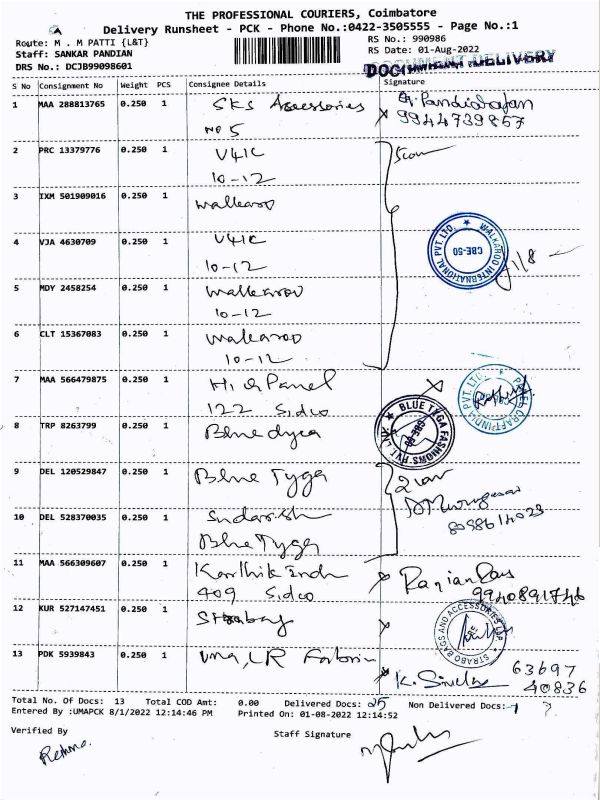 THE PROFESSIONAL COURIERS, Coimbatore
Delivery Runsheet - PCK - Phone No.:0422-3505555 - Page No.:1
Route: M . M PATTI {L&T}
RS No.: 990986
Staff: SANKAR PANDIAN
RS Date: 01-Aug-2022
DRS No.: DCJB99098601
DOCUMENT DELIVERY
S No Consignment No Weight PCS Consignee Details Signature
1 MAA 288813765 0.250 1 SKS Accessories
No 5
9944739857
2 PRC 13379776 0.250 1 V4IC
10-12
3 IXM 501909016 0.250 1 Walkaroo
4 VJA 4630709 0.250 1 V4IC
10-12
WALKAROO INTERNATIONAL PVT. LTD. CBE-50
5 MDY 2458254 0.250 1 Walkaroo
10-12
6 CLT 15367083 0.250 1 Walkaroo
10-12
7 MAA 566479875 0.250 1 Hi Q Panel
122 Sidco
8 TRP 8263799 0.250 1
BLUE TYGA FASHIONS PVT. LTD.
9 DEL 120529847 0.250 1 Blue Tyga
10 DEL 528370035 0.250 1 Sudarish
Blue Tyga
11 MAA 566309607 0.250 1 Karthik Indu
409 Sidco
9940891746
12 KUR 527147451 0.250 1
STRABO BAGS AND ACCESSORIES LLP
13 PDK 5939843 0.250 1
63697
40836
Total No. Of Docs: 13 Total COD Amt: 0.00 Delivered Docs: 25 Non Delivered Docs:
Entered By :UMAPCK 8/1/2022 12:14:46 PM Printed On: 01-08-2022 12:14:52
Verified By
Staff Signature